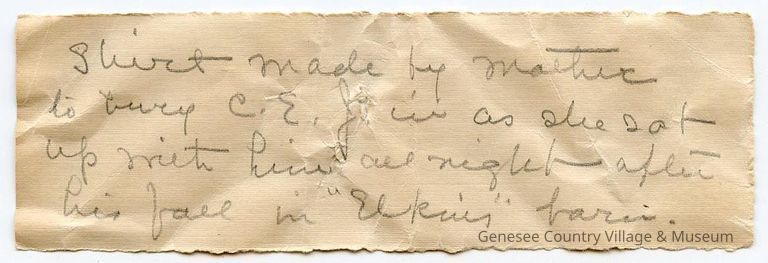 Shirt made by Mother
to bury C. E. J. in as she sat
up with him all night after
his fall in "Elkins" barn.
Genesee Country Village & Museum